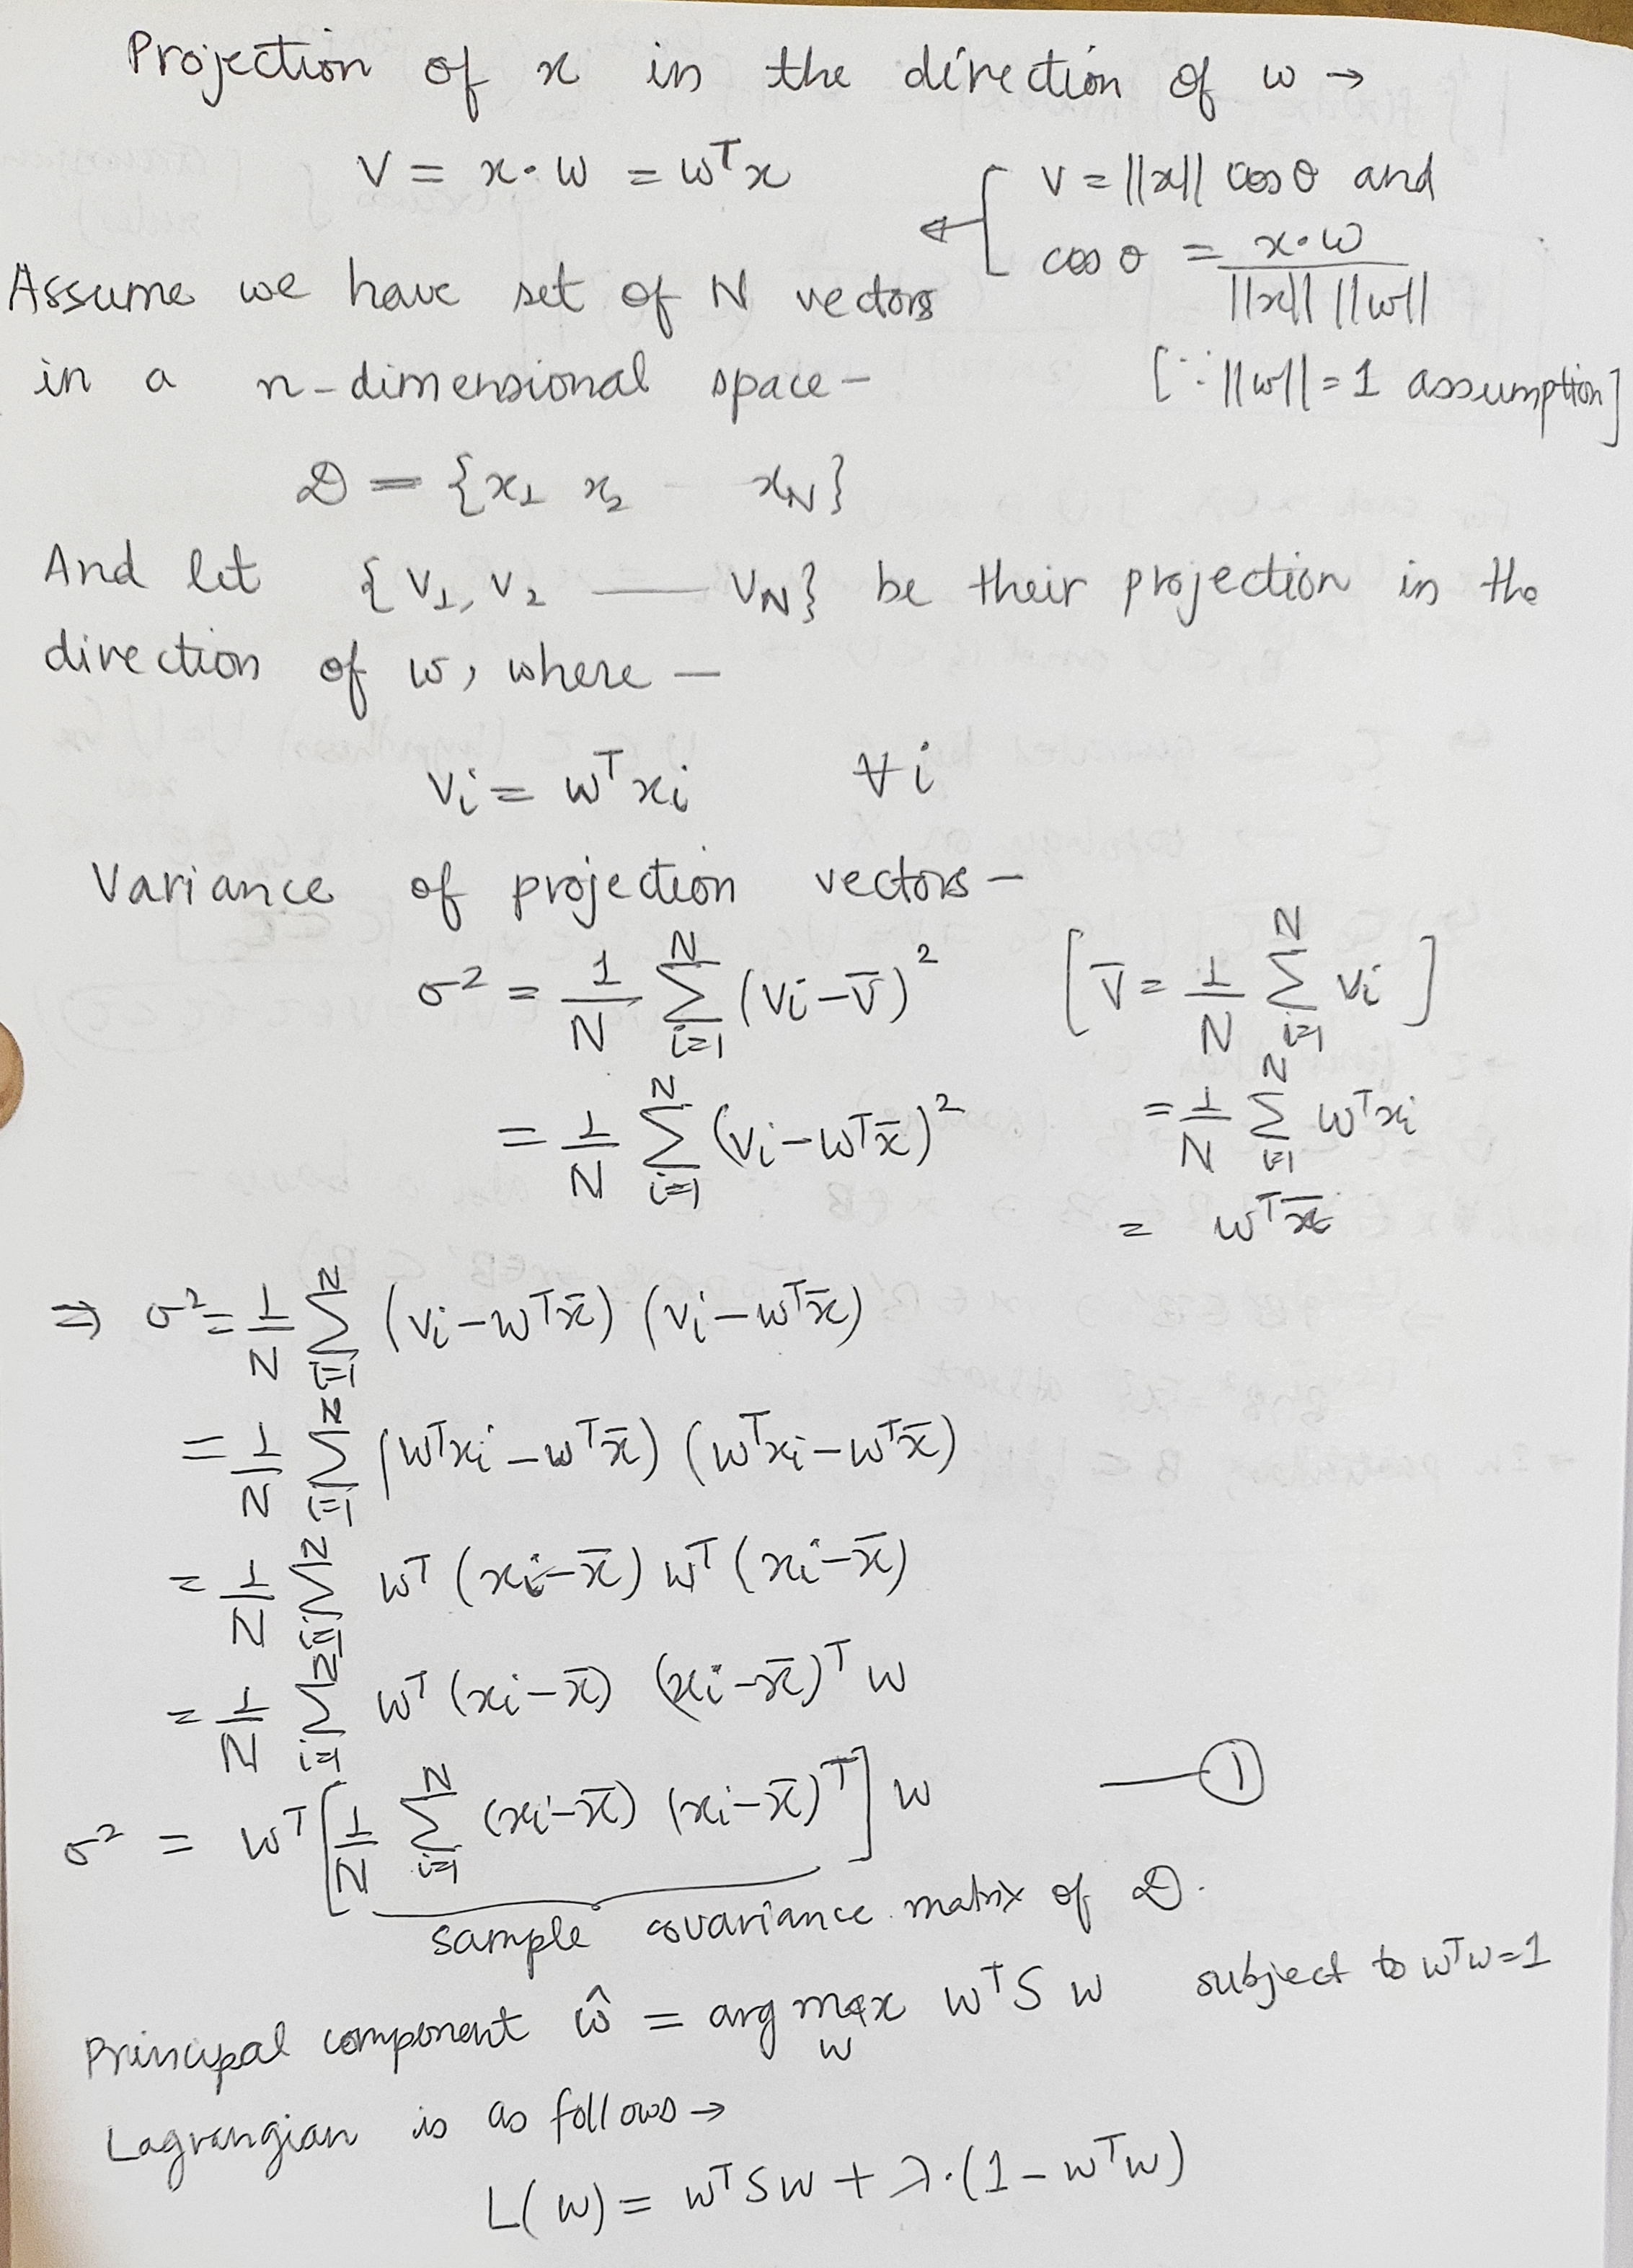 Projection of x in the direction of w →
V = x·w = wᵀx
v = ||x|| cosθ and
cosθ = x·w / ||x|| ||w||
[∵ ||w|| = 1 assumption]
Assume we have set of N vectors
in a n-dimensional space –
D = {x₁ x₂ - - x_N}
And let {V₁, V₂ — V_N} be their projection in the
direction of w, where –
Vᵢ = wᵀxᵢ ∀i
Variance of projection vectors –
σ² = 1/N Σ_{i=1}^{N} (vᵢ – v̄)² [v̄ = 1/N Σ_{i=1}^{N} vᵢ]
= 1/N Σ_{i=1}^{N} (vᵢ – wᵀx̄)² = 1/N Σ_{i=1}^{N} wᵀxᵢ
= wᵀx̄
⇒ σ² = 1/N Σ_{i=1}^{N} (vᵢ – wᵀx̄) (vᵢ – wᵀx̄)
= 1/N Σ_{i=1}^{N} (wᵀxᵢ – wᵀx̄) (wᵀxᵢ – wᵀx̄)
= 1/N Σ_{i=1}^{N} wᵀ(xᵢ – x̄) wᵀ(xᵢ – x̄)
= 1/N Σ_{i=1}^{N} wᵀ(xᵢ – x̄) (xᵢ – x̄)ᵀ w
σ² = wᵀ [1/N Σ_{i=1}^{N} (xᵢ – x̄) (xᵢ – x̄)ᵀ] w — ①
sample covariance matrix of D.
Principal component ŵ = arg max_w wᵀS w subject to wᵀw=1
Lagrangian is as follows →
L(w) = wᵀSw + λ·(1 – wᵀw)